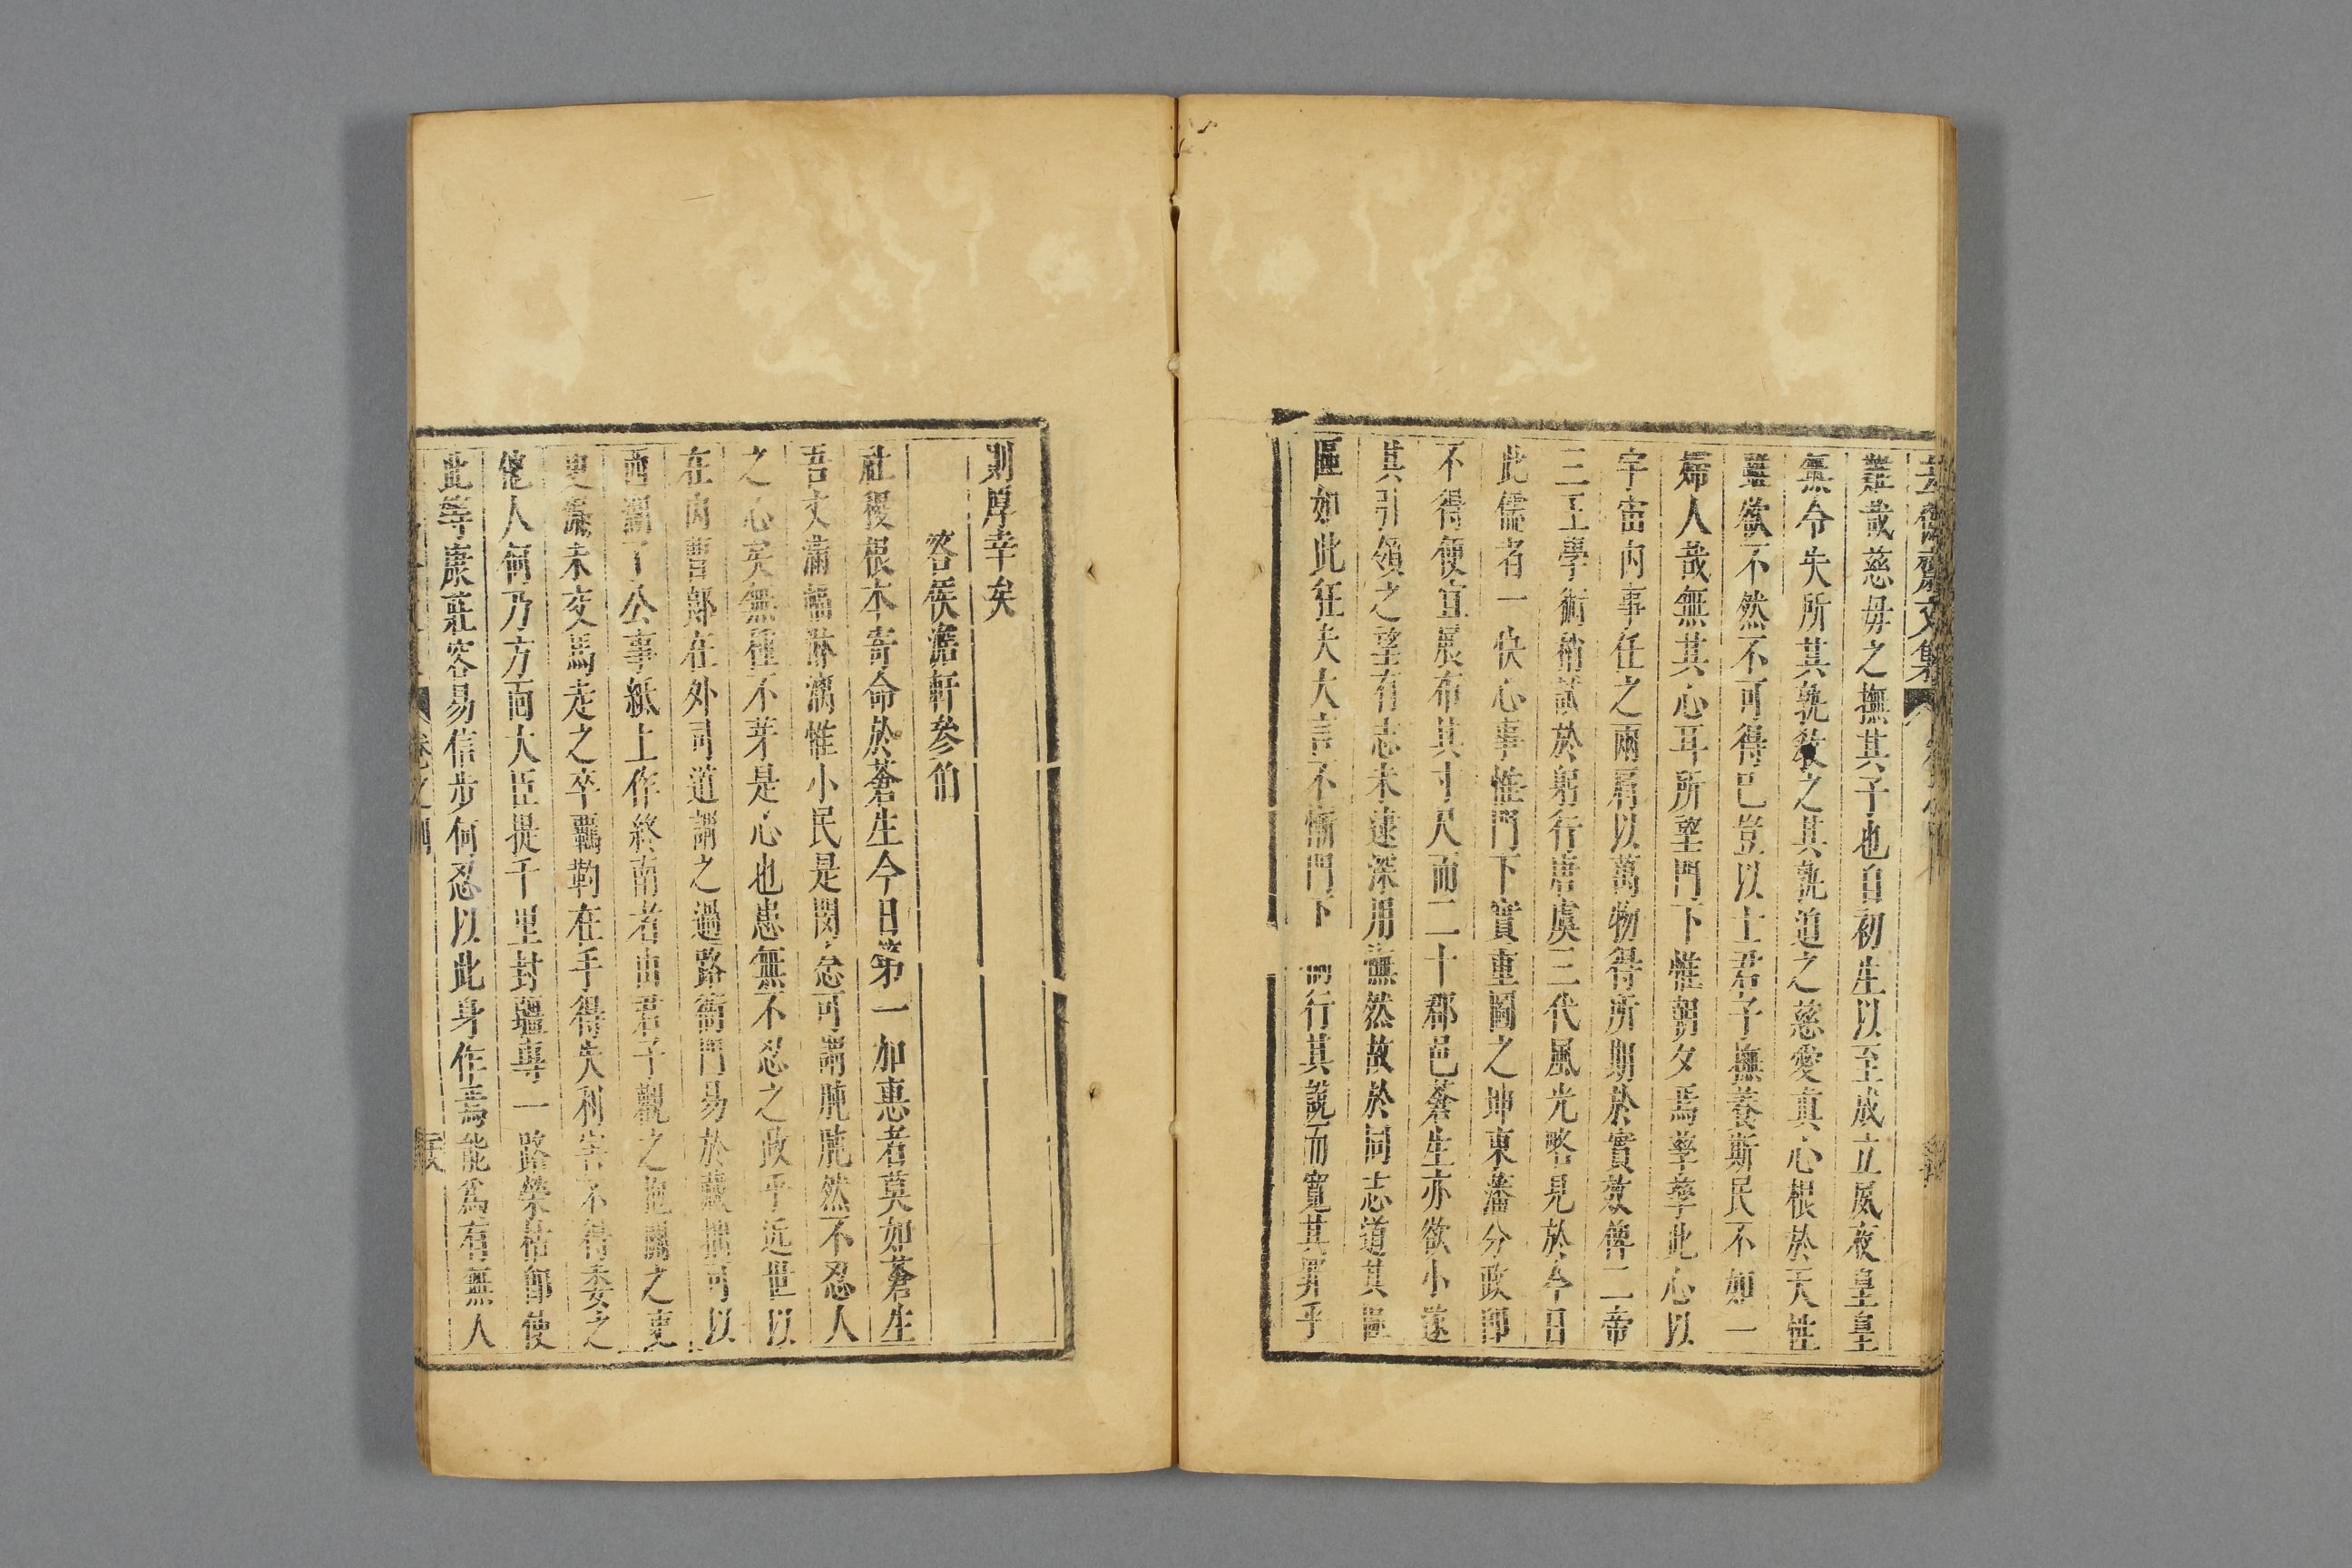 去偽齋文集
難哉慈母之撫其子也自初生以至成立夙夜皇皇
無令失所其孰教之其孰迫之慈愛真心根於天性
雖欲不然不可得已豈以士君子撫養斯民不如一
婦人哉無其心耳所望門下惟朝夕焉孳孳此心以
宇宙內事任之兩肩以萬物得所期於實效俾二帝
三王學術稍試於躬行唐虞三代風光略見於今日
此儒者一快心事惟門下實重圖之坤東藩分政即
不得便宜展布其寸尺而二十郡邑蒼生亦欲小遂
其引領之望有志未逮深用憮然故於同志道其區
區如此狂夫大言不慚門下 倘行其說而寬其罪乎
則厚幸矣
答侯澹軒參伯
社稷根本寄命於蒼生今日第一加惠者莫如蒼生
吾丈滿幅淋漓惟小民是閔念可謂肫肫然不忍人
之心矣無種不芽是心也患無不忍之政乎近世以
在內曹郎在外司道謂之過路衙門易於藏拙可以
西湖了公事紙上作終南者由君子觀之抱關之吏
史濂未交馬走之卒羈靮在手得失利害不得委之
他人何乃方面大臣提千里封疆專一路榮枯卻使
此等康莊容易信步何忍以此身作焉能為有無人
卷之四